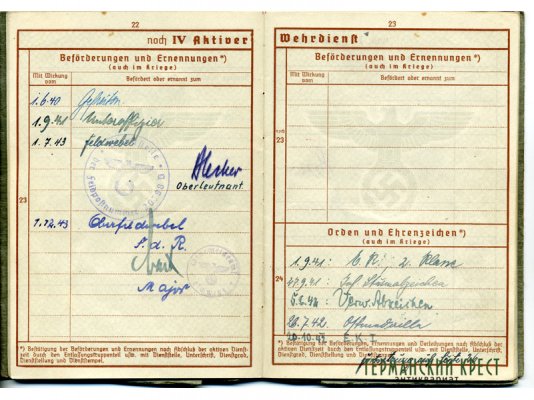 22
noch IV Aktiver
Beförderungen und Ernennungen*)
(auch im Kriege)
Mit Wirkung vom
Befördert oder ernannt zum
1.6.40 Gefreiten
1.9.41 Unteroffizier
1.7.43 Feldwebel
Oberleutnant.
23
1.12.43 Oberfeldwebel
d. R.
Major
*) Bestätigung der Beförderungen und Ernennungen nach Abschluß der aktiven Dienstzeit durch den Entlassungstruppenteil usw. mit Dienststelle, Unterschrift, Dienstgrad, Dienststellung und Dienststempel.
23
Wehrdienst
Beförderungen und Ernennungen*)
(auch im Kriege)
Mit Wirkung vom
Befördert oder ernannt zum
Orden und Ehrenzeichen*)
(auch im Kriege)
1.9.41 E.K. 2. Klasse
24
Inf. Sturmabzeichen
Verw. Abzeichen
26.7.42 Ostmedaille
E.K.I
*) Bestätigung der Beförderungen und Verleihungen nach Abschluß der aktiven Dienstzeit durch den Entlassungstruppenteil usw. mit Dienststelle, Unterschrift, Dienstgrad, Dienststellung und Dienststempel.
ГЕРМАНСКИЙ КРЕСТ
антиквариат